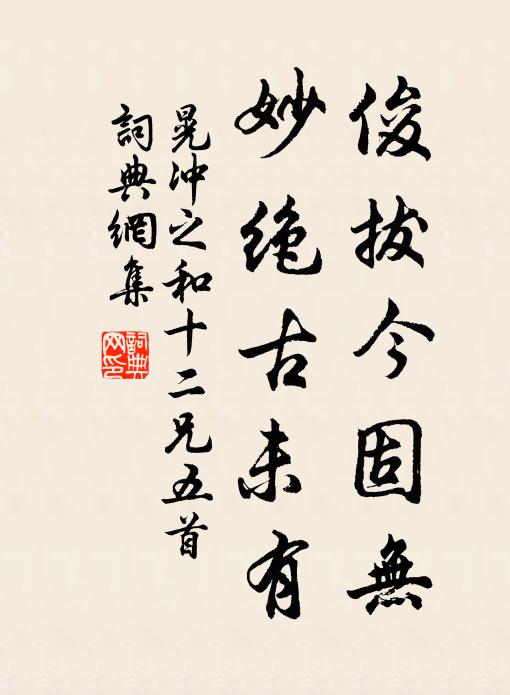 俊拔今固無
妙絕古未有
晁沖之和十二兄五首
詞典網集
詞典
网印